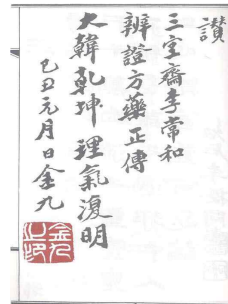 讚
三空齋李常和
辨證方藥正傳
大韓乾坤 理氣復明
己丑元月日金九
金九之印